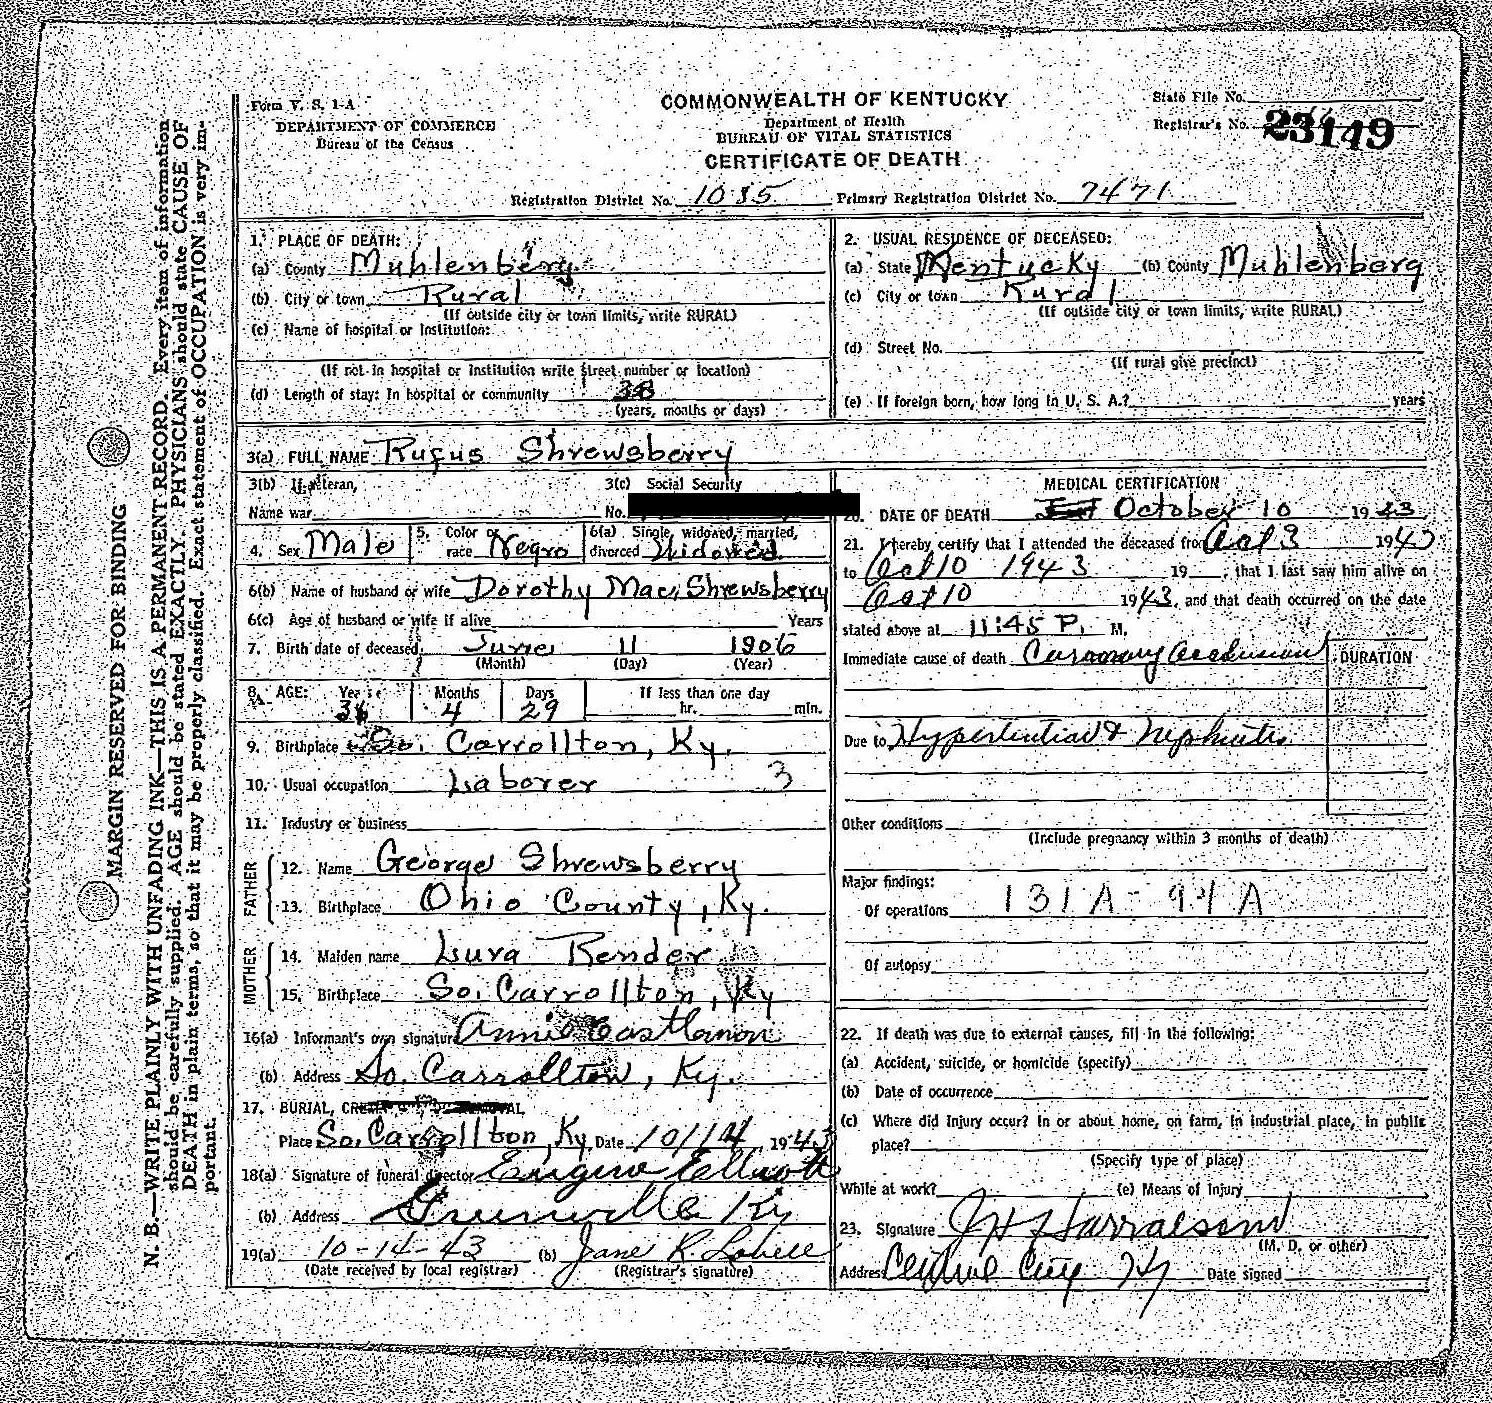 Form V. S. 1-A
DEPARTMENT OF COMMERCE
Bureau of the Census
COMMONWEALTH OF KENTUCKY
Department of Health
BUREAU OF VITAL STATISTICS
CERTIFICATE OF DEATH
State File No.
Registrar's No. 23149
Registration District No. 1085 Primary Registration District No. 7471
MARGIN RESERVED FOR BINDING
N. B.—WRITE PLAINLY WITH UNFADING INK—THIS IS A PERMANENT RECORD. Every item of information
should be carefully supplied. AGE should be stated EXACTLY. PHYSICIANS should state CAUSE OF
DEATH in plain terms, so that it may be properly classified. Exact statement of OCCUPATION is very im-
portant.
1. PLACE OF DEATH:
(a) County Muhlenberg
(b) City or town Rural
(If outside city or town limits, write RURAL)
(c) Name of hospital or institution:
(If not in hospital or institution write street number or location)
(d) Length of stay: In hospital or community 38
(years, months or days)
2. USUAL RESIDENCE OF DECEASED:
(a) State Kentucky (b) County Muhlenberg
(c) City or town Rural
(If outside city or town limits, write RURAL)
(d) Street No.
(If rural give precinct)
(e) If foreign born, how long in U. S. A.? years
3(a) FULL NAME Rufus Shrewsberry
3(b) If veteran,
Name war
3(c) Social Security
No.
4. Sex Male
5. Color or
race Negro
6(a) Single, widowed, married,
divorced Widowed
6(b) Name of husband or wife Dorothy Mae Shrewsberry
6(c) Age of husband or wife if alive Years
7. Birth date of deceased June 11 1906
(Month) (Day) (Year)
8. AGE: Years Months Days If less than one day
36 4 29 hr. min.
9. Birthplace So. Carrollton, Ky.
10. Usual occupation Laborer 3
11. Industry or business
FATHER
12. Name George Shrewsberry
13. Birthplace Ohio County, Ky.
MOTHER
14. Maiden name Lura Render
15. Birthplace So. Carrollton, Ky
16(a) Informant's own signature Annie Eastlemon
(b) Address So. Carrollton, Ky.
17. BURIAL, CREMATION, OR REMOVAL
Place So. Carrollton, Ky Date 10/14 1943
18(a) Signature of funeral director Eugene Elliott
(b) Address Greenville Ky
19(a) 10-14-43 (b) Jane R. Lovell
(Date received by local registrar) (Registrar's signature)
MEDICAL CERTIFICATION
20. DATE OF DEATH October 10 1943
21. I hereby certify that I attended the deceased from Oct 3 1943
to Oct 10 1943 19 , that I last saw him alive on
Oct 10 1943, and that death occurred on the date
stated above at 11:45 P. M.
Immediate cause of death Coronary Occlusion DURATION
Due to Hypertention & Nephritis
Other conditions
(Include pregnancy within 3 months of death)
Major findings:
Of operations 131 A - 94 A
Of autopsy
22. If death was due to external causes, fill in the following:
(a) Accident, suicide, or homicide (specify)
(b) Date of occurrence
(c) Where did injury occur? In or about home, on farm, in industrial place, in public
place?
(Specify type of place)
While at work? (e) Means of Injury
23. Signature J H Harralson
(M. D. or other)
Address Central City Ky Date signed